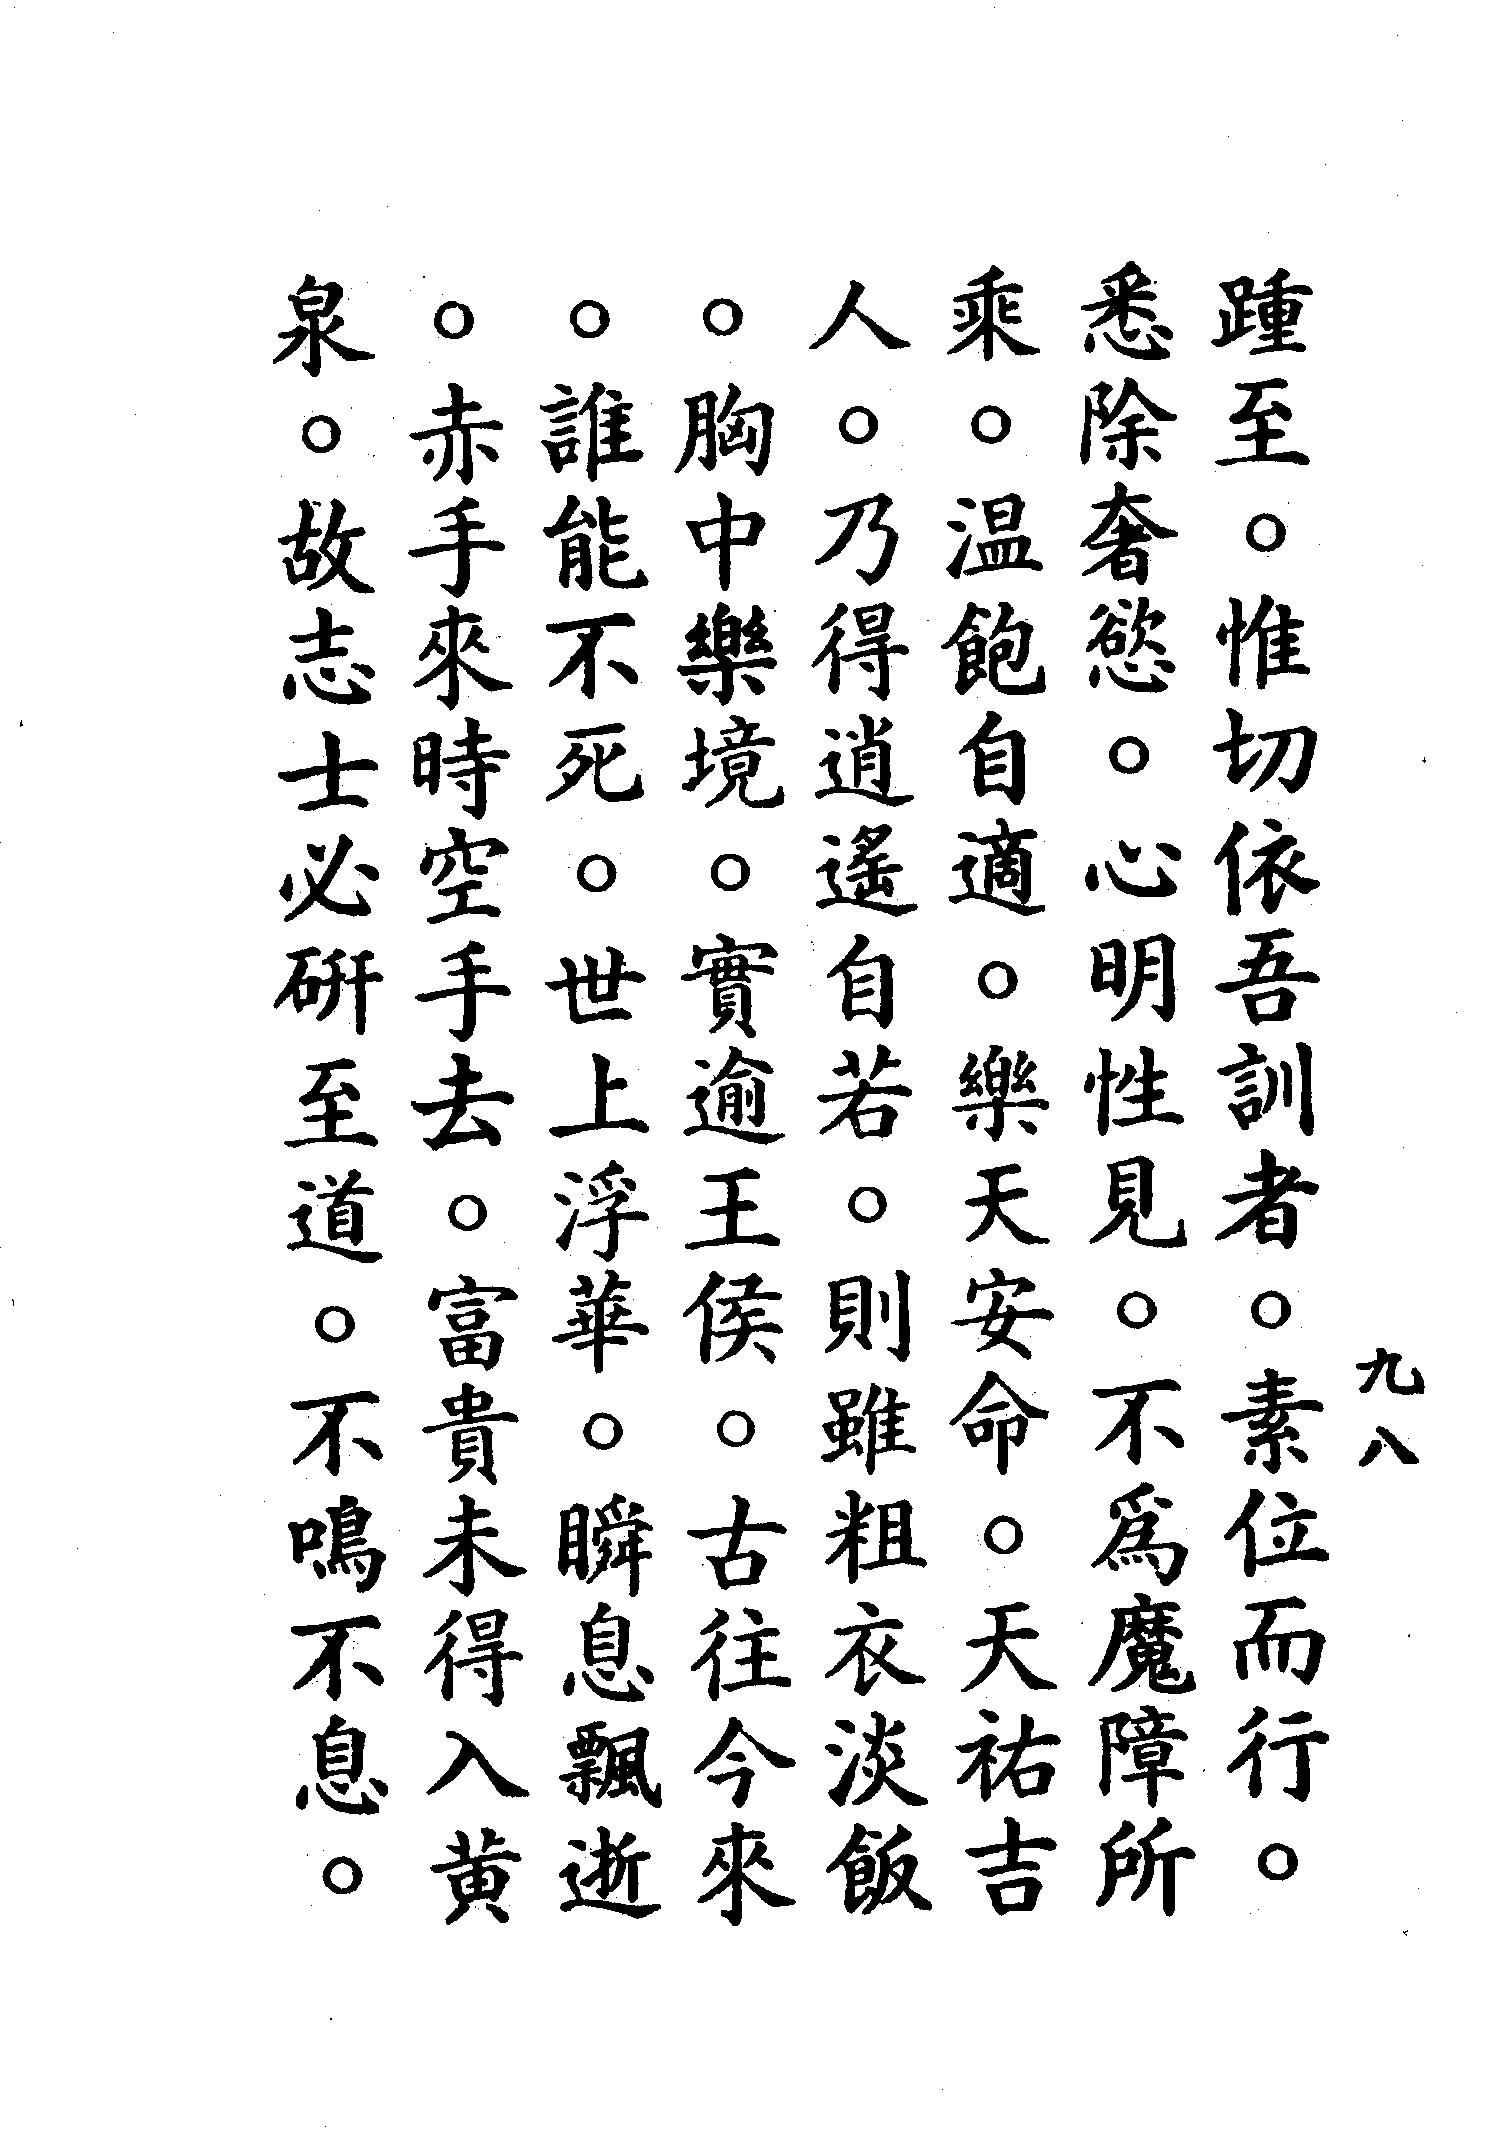 九八
踵至。惟切依吾訓者。素位而行。
悉除奢慾。心明性見。不爲魔障所
乘。温飽自適。樂天安命。天祐吉
人。乃得逍遙自若。則雖粗衣淡飯
。胸中樂境。實逾王侯。古往今來
。誰能不死。世上浮華。瞬息飄逝
。赤手來時空手去。富貴未得入黄
泉。故志士必硏至道。不鳴不息。